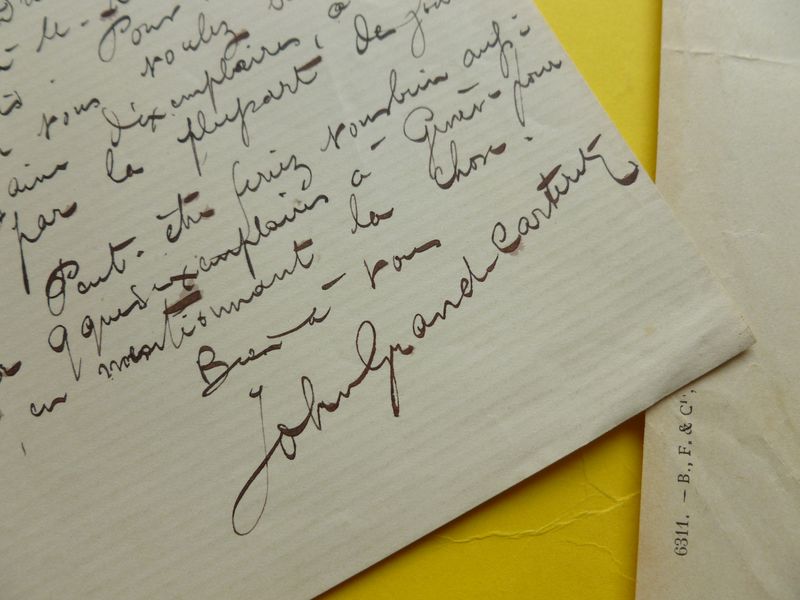 Pour
vous voulez
ainsi d'exemplaires, à
par la plupart de
Peut-être feriez vous bien aussi
qques exemplaires à Genève pour
en mentionnant la chose.
Bien à vous
John Grand-Carteret
6311. — B., F. & Cie,